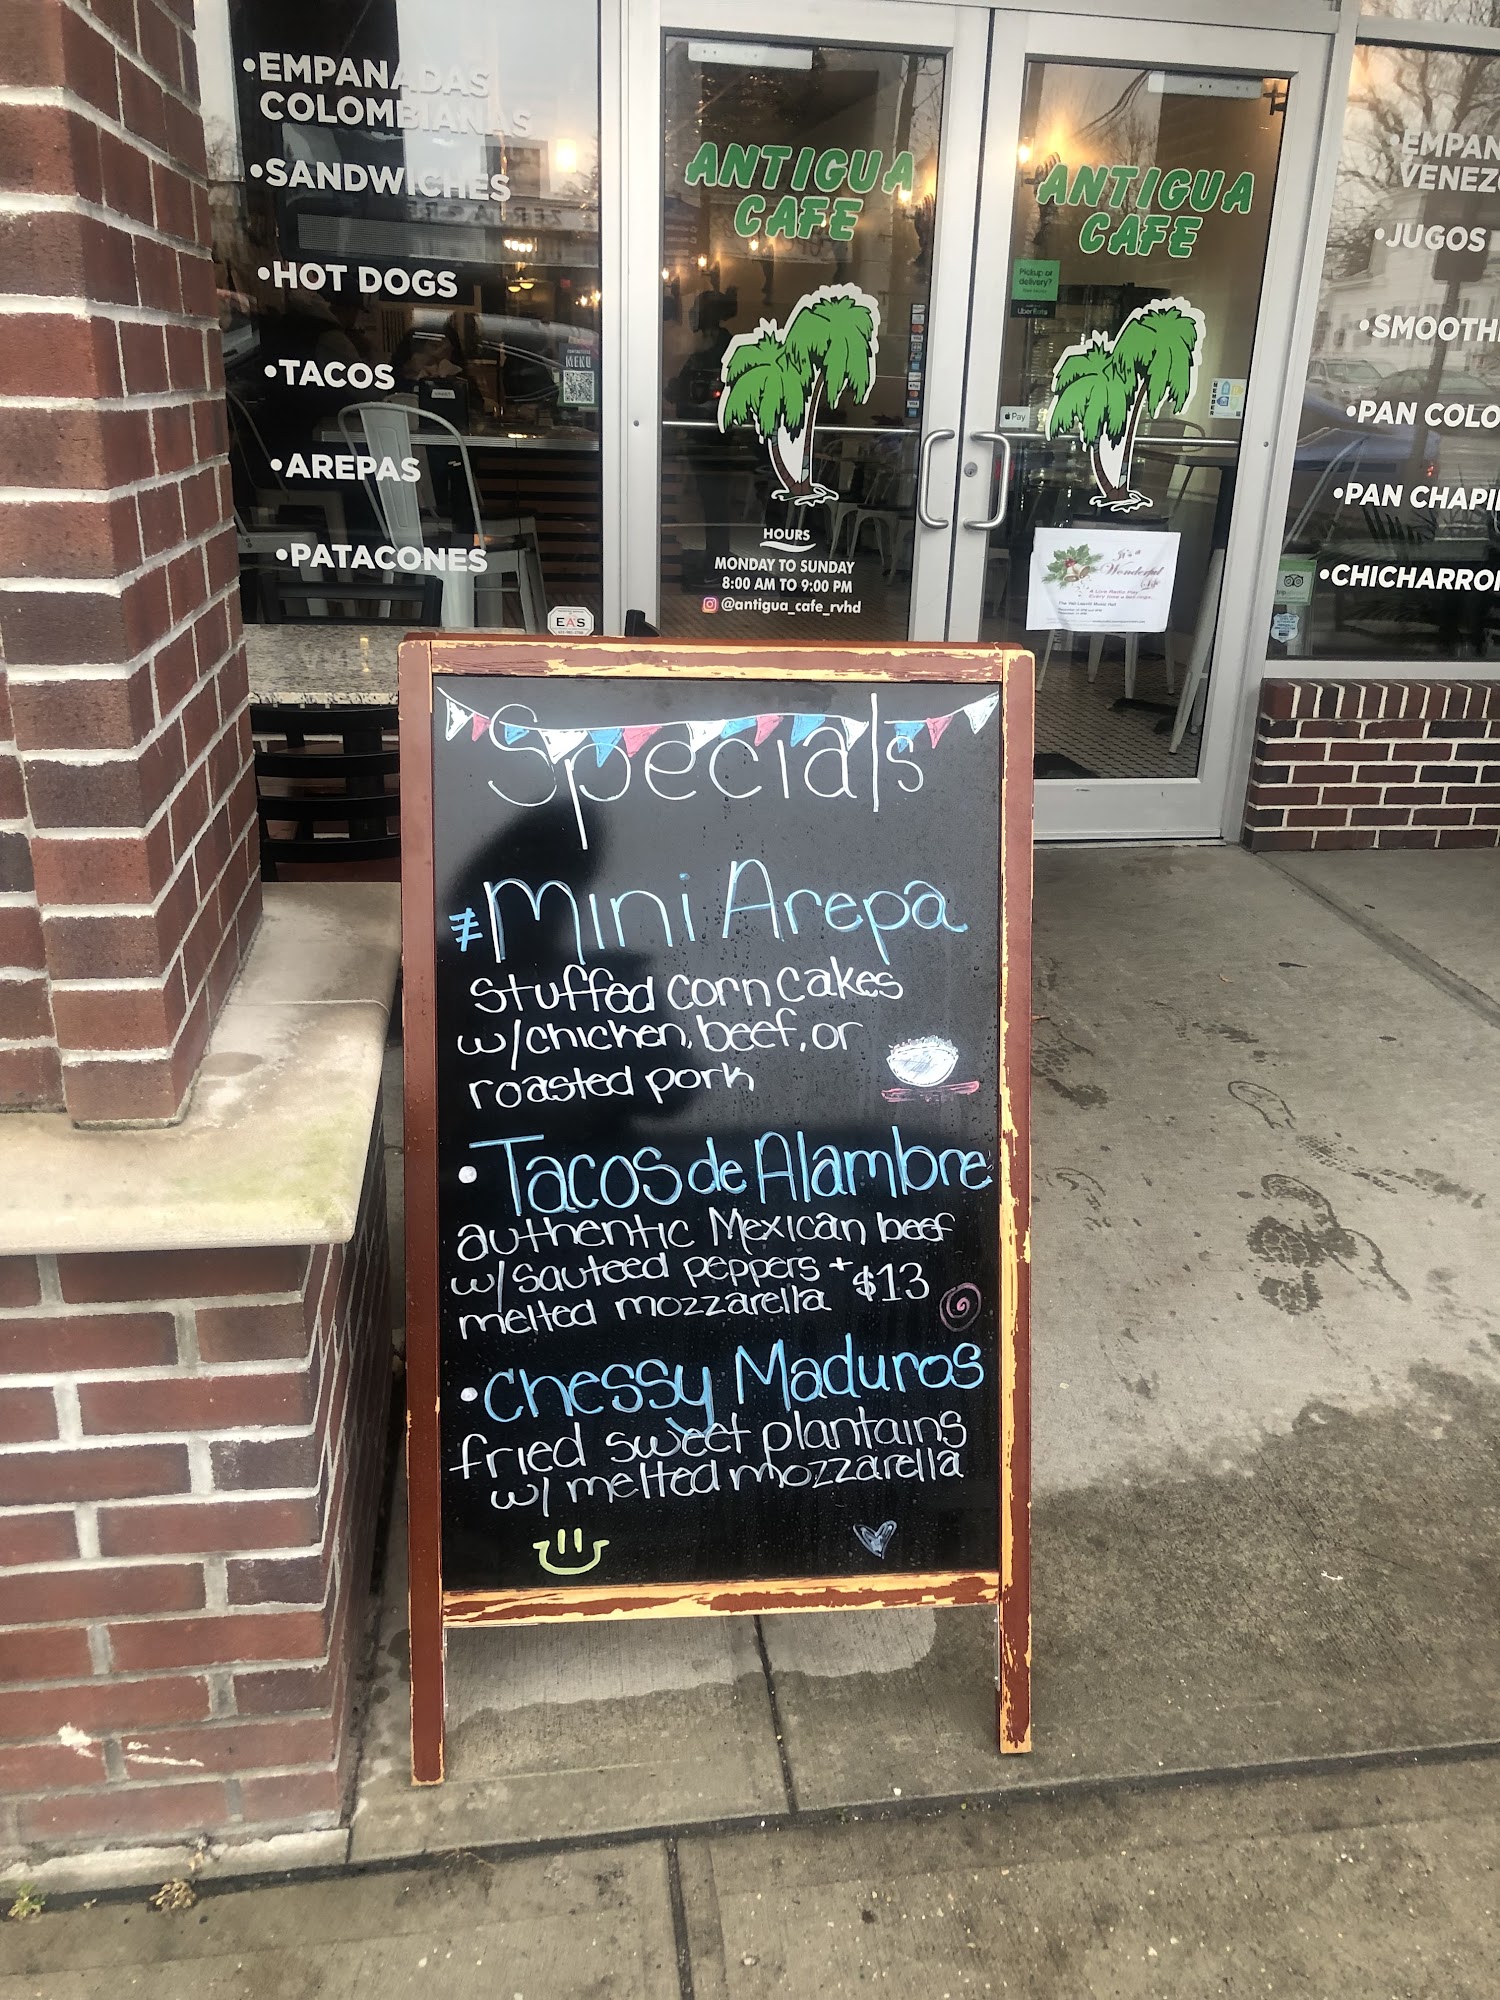 •EMPANADAS
COLOMBIANAS
•SANDWICHES
•HOT DOGS
•TACOS
•AREPAS
•PATACONES
MENU
EAS
ANTIGUA
CAFE
HOURS
MONDAY TO SUNDAY
8:00 AM TO 9:00 PM
@antigua_cafe_rvhd
ANTIGUA
CAFE
Pickup or
delivery?
Uber Eats
Pay
It's a
Wonderful
Life
A Live Radio Play
•EMPAN
VENEZ
•JUGOS
•SMOOTH
•PAN COLO
•PAN CHAPI
•CHICHARRO
Specials
Mini Arepa
Stuffed corn cakes
w/chicken, beef, or
roasted pork
•Tacos de Alambre
authentic Mexican beef
w/sauteed peppers +
melted mozzarella $13
•Chessy Maduros
fried sweet plantains
w/ melted mozzarella